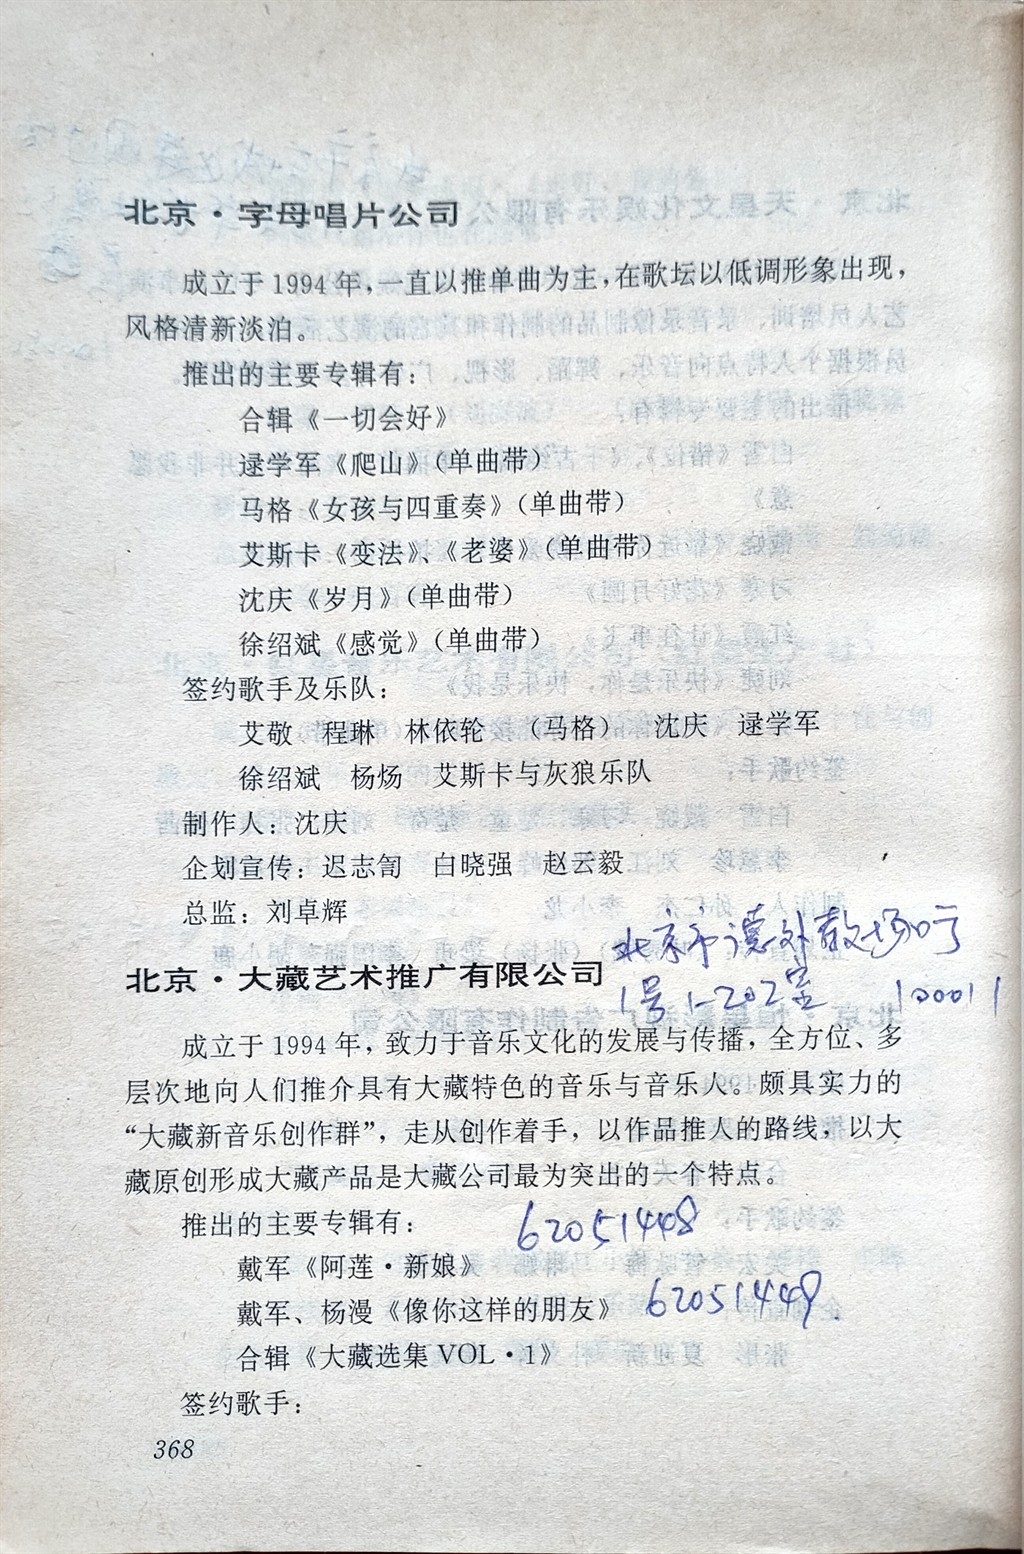 北京·字母唱片公司
成立于1994年，一直以推单曲为主，在歌坛以低调形象出现，
风格清新淡泊。
推出的主要专辑有：
合辑《一切会好》
逯学军《爬山》（单曲带）
马格《女孩与四重奏》（单曲带）
艾斯卡《变法》、《老婆》（单曲带）
沈庆《岁月》（单曲带）
徐绍斌《感觉》（单曲带）
签约歌手及乐队：
艾敬 程琳 林依轮 （马格） 沈庆 逯学军
徐绍斌 杨炀 艾斯卡与灰狼乐队
制作人：沈庆
企划宣传：迟志訇 白晓强 赵云毅
总监：刘卓辉
北京市德外教场口
1号1-202室 100011
北京·大藏艺术推广有限公司
成立于1994年，致力于音乐文化的发展与传播，全方位、多
层次地向人们推介具有大藏特色的音乐与音乐人。颇具实力的
“大藏新音乐创作群”，走从创作着手，以作品推人的路线，以大
藏原创形成大藏产品是大藏公司最为突出的一个特点。
推出的主要专辑有：
62051448
戴军《阿莲·新娘》
戴军、杨漫《像你这样的朋友》
62051449
合辑《大藏选集VOL·1》
签约歌手：
368